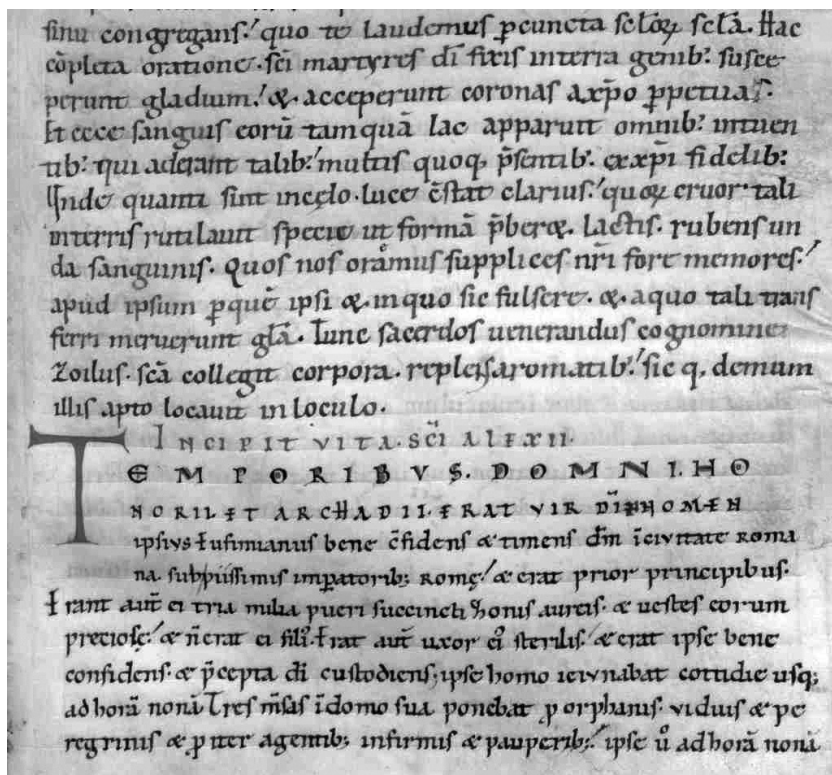 sinu congregans. quo te laudemus ꝑcuncta sc̄loꝝ sc̄la. Hac
cōpleta oratione. sc̄i martyres dī fixis interra genibꝫ susce
perunt gladium. & acceperunt coronas axp̄o ꝑpetuas.
Et ecce sanguis eorū tamquā lac apparuit omnibꝫ intuen
tibꝫ qui aderant talibꝫ multis quoq, p̄sentibꝫ exxp̄i fidelibꝫ
Unde quanti sint incęlo. luce c̄stat clarius. quoꝝ cruor tali
interris rutilauit specie ut formā p̄ber& lactis. rubens un
da sanguinis. Quos nos oramus supplices nr̄i fore memores.
apud ipsum ꝑquē ipsi & inquo sic fulsere. & aquo tali trans
ferri meruerunt gl̄a. Tunc sacerdos uenerandus cognomine
Zoilus. sc̄a collegit corpora. repleisaromatibꝫ sic q, demum
illis apto locauit inloculo.
INCIPIT VITA. SC̄I ALEXII.
TEMPORIBVS. DOMNI. HO
NORII. ET ARCHADII. ERAT VIR DIN̄ NOMEN
ipsivs Eufimianus bene c̄fidens & timens dm̄ īciuitate ROMA
na. subpiissimis imꝑatoribꝫ ROMę. & erat prior principibus.
Erant aut̄ ei tria milia pueri succincti zonis aureis. & uestes eorum
preciosę. & n̄ erat ei fili᾿. Erat aut̄ uxor ei᾿ sterilis. & erat ipse bene
confidens. & p̄cepta dī custodiens; ipse homo ieiunabat cottidie usq;
ad horā nonā Tres m̄sas īdomo sua ponebat ꝑ orphanis. viduis & pe
regrinis & ꝑ iter agentibꝫ infirmis & pauperibꝫ ipse u̅ ad horā nonā